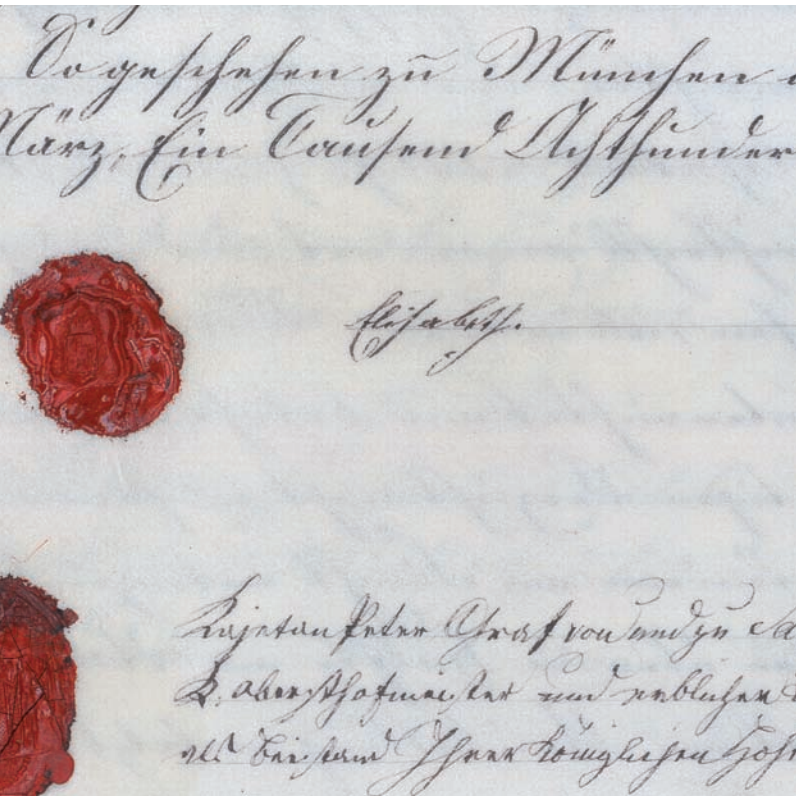 So geschehen zu München
März, Ein Tausend Achthunder
Elisabeth.
Kajetan Peter Graf von und zu Sa
K. Obersthofmeister und erblicher
als Beistand Ihrer Königlichen Hohe